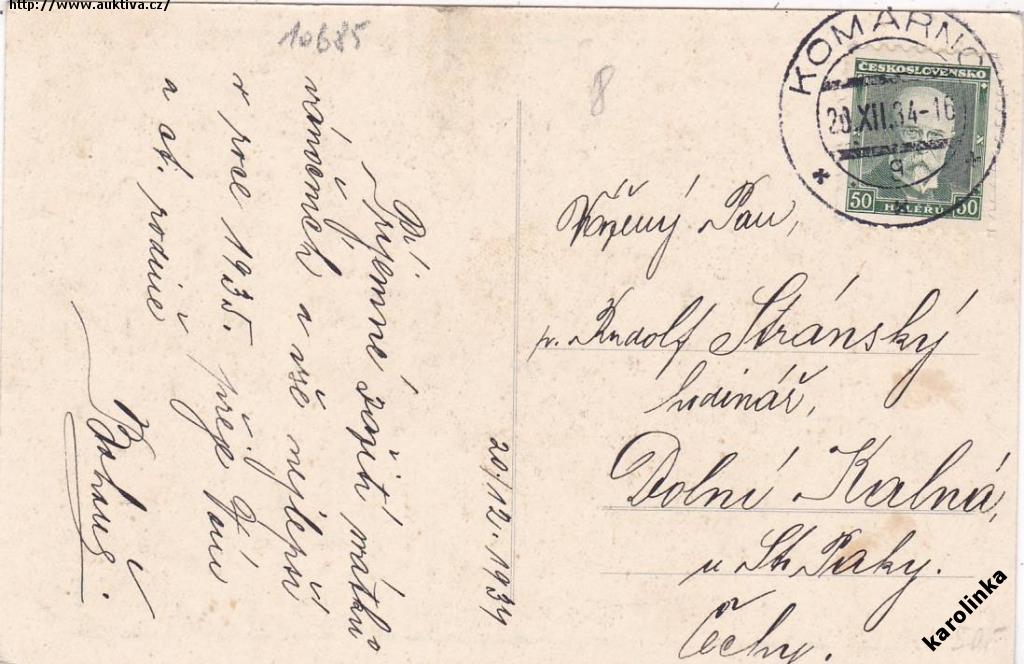 http://www.auktiva.cz/
10685
8
KOMÁRNO
20.XII.34-16
ČESKOSLOVENSKO
50 HALÉŘŮ 50
20./12. 1934
Příjemné svátků
vánočních a vše nejlepší
v roce 1935. přeje Vám
a ct. rodině
Vážený Pan,
p. Rudolf Stránský
hodinář,
Dolní Kalná,
u St. Paky.
Čechy.
karolinka